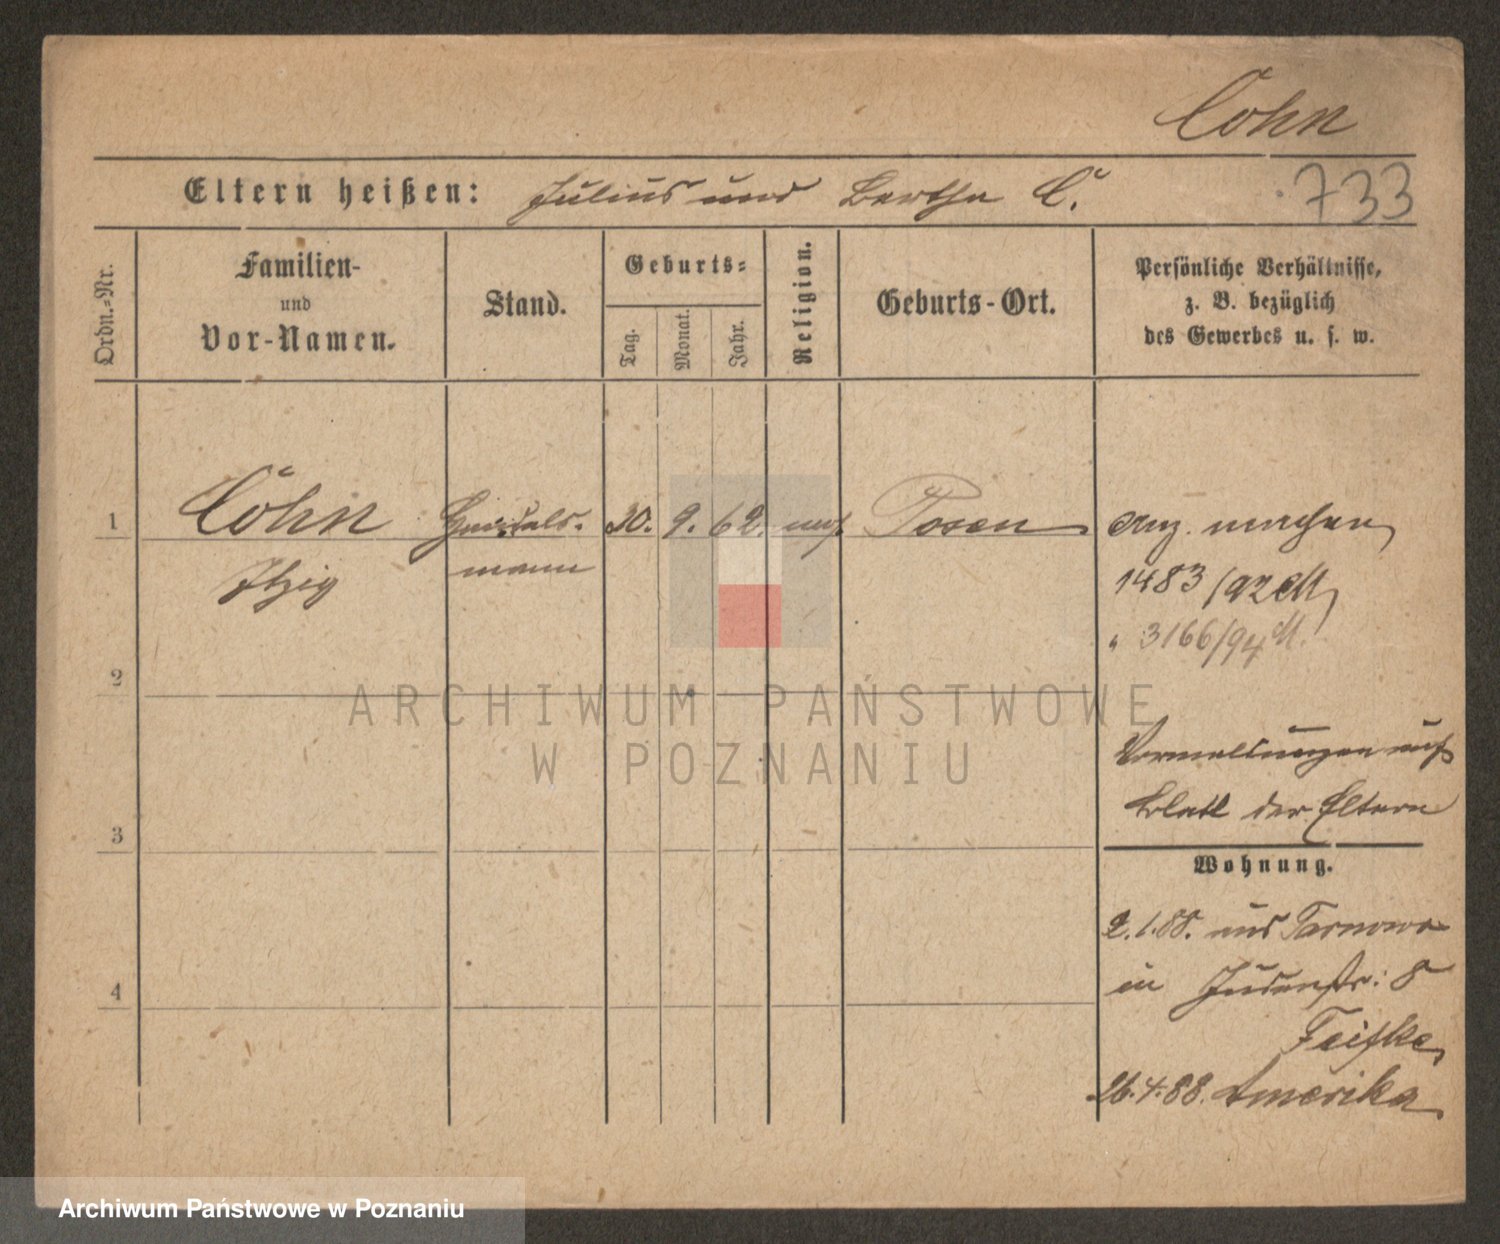 Cohn
Eltern heißen: Julius und Bertha C.
733
Ordn.-Nr.
Familien-
und
Vor-Namen.
Stand.
Geburts-
Tag.
Monat.
Jahr.
Religion.
Geburts-Ort.
Persönliche Verhältnisse,
z. B. bezüglich
des Gewerbes u. s. w.
1
Cohn
Handels-
30. 9. 62. mos
Posen
Itzig
mann
1483/92 M
" 3166/94 M.
2
auf
Blatt der Eltern
3
Wohnung.
2.1.88. aus Tarnowo
in Judenstr: 8
4
26.4.88. Amerika
ARCHIWUM PAŃSTWOWE
W POZNANIU
Archiwum Państwowe w Poznaniu